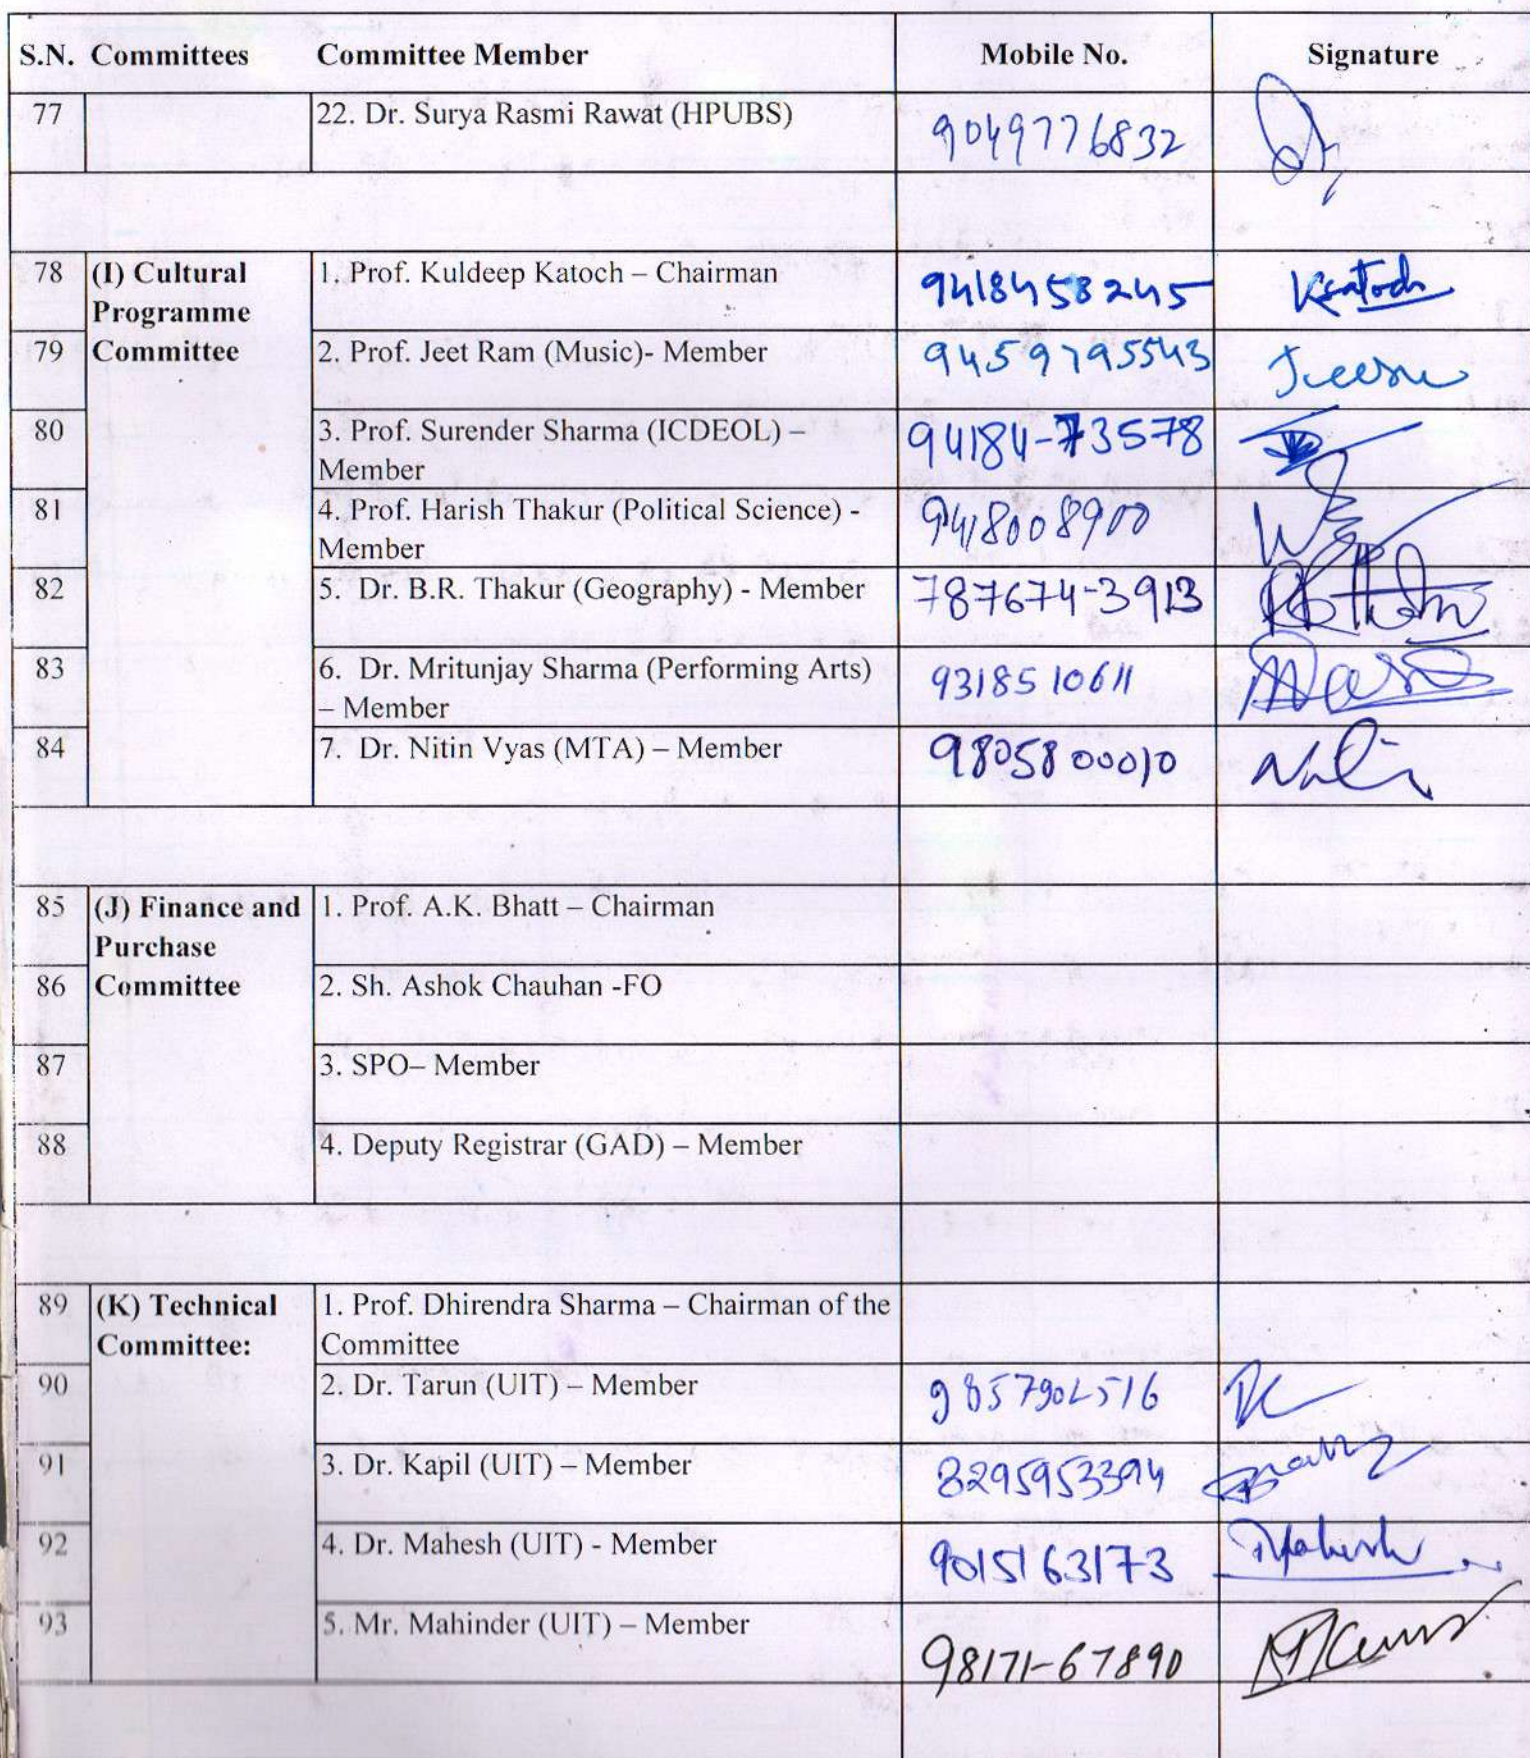 S.N. Committees Committee Member Mobile No. Signature
77 22. Dr. Surya Rasmi Rawat (HPUBS) 9049776832
78 (I) Cultural 1. Prof. Kuldeep Katoch – Chairman 9418458245 Katoch
Programme
79 Committee 2. Prof. Jeet Ram (Music)- Member 9459795543
80 3. Prof. Surender Sharma (ICDEOL) – 94184-73578
Member
81 4. Prof. Harish Thakur (Political Science) - 9418008900
Member
82 5. Dr. B.R. Thakur (Geography) - Member 787674-3913
83 6. Dr. Mritunjay Sharma (Performing Arts) 9318510611
– Member
84 7. Dr. Nitin Vyas (MTA) – Member 9805800010
85 (J) Finance and 1. Prof. A.K. Bhatt – Chairman
Purchase
86 Committee 2. Sh. Ashok Chauhan -FO
87 3. SPO– Member
88 4. Deputy Registrar (GAD) – Member
89 (K) Technical 1. Prof. Dhirendra Sharma – Chairman of the
Committee: Committee
90 2. Dr. Tarun (UIT) – Member 9857902516
91 3. Dr. Kapil (UIT) – Member 8295953394
92 4. Dr. Mahesh (UIT) - Member 9015163173 Mahesh
93 5. Mr. Mahinder (UIT) – Member 98171-67890